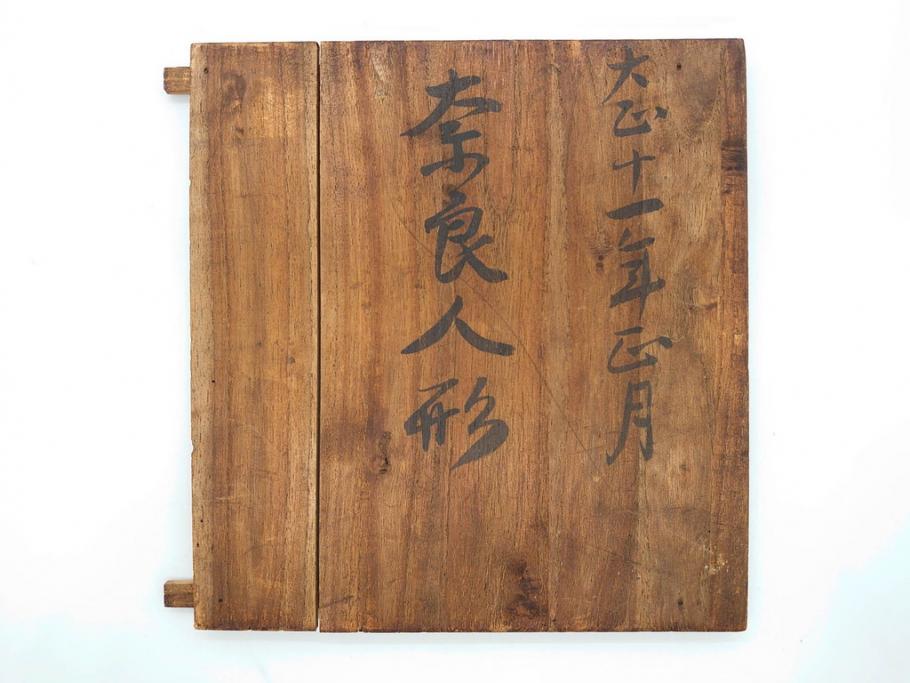 大正十一年正月
奈良人形